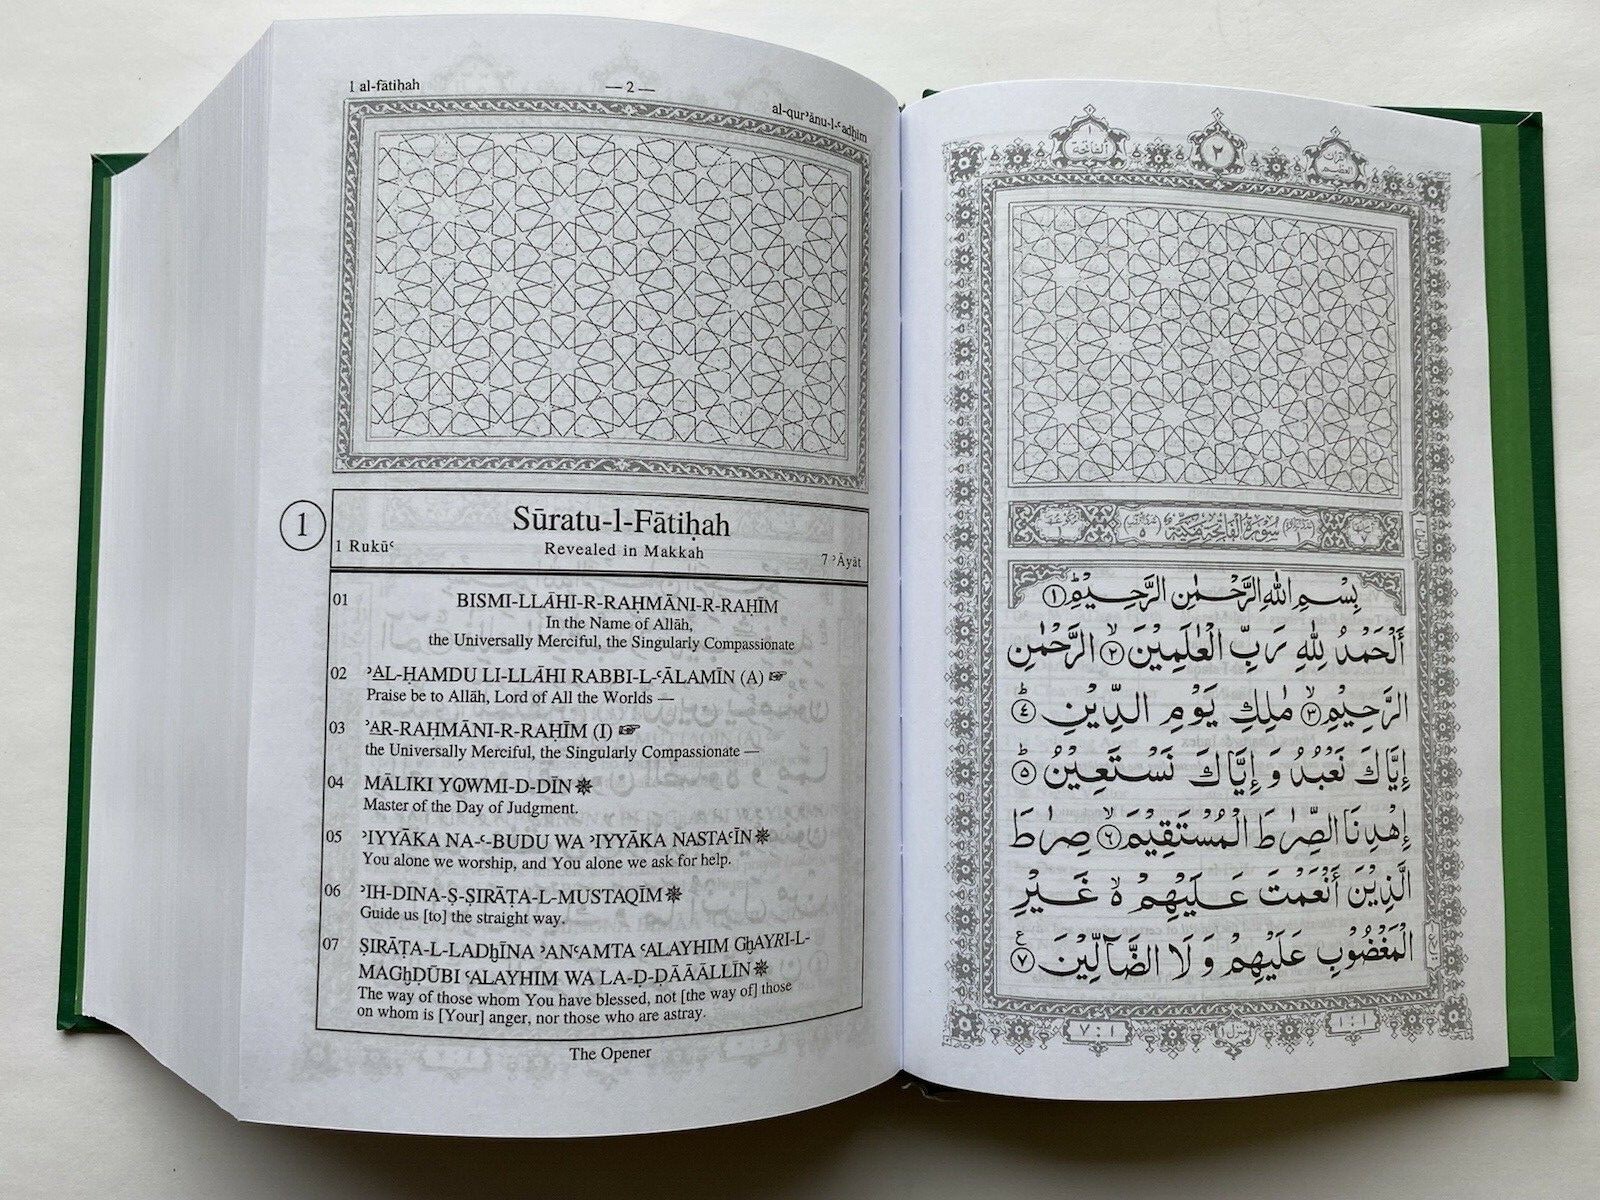 1 al-fātiḥah
— 2 —
al-qurʾānu-l-ʿadhim
1
Sūratu-l-Fātiḥah
1 Rukūʿ
Revealed in Makkah
7 ʾĀyāt
01 BISMI-LLĀHI-R-RAḤMĀNI-R-RAḤĪM
In the Name of Allāh,
the Universally Merciful, the Singularly Compassionate
02 ʾAL-ḤAMDU LI-LLĀHI RABBI-L-ʿĀLAMĪN (A) ☞
Praise be to Allāh, Lord of All the Worlds —
03 ʾAR-RAḤMĀNI-R-RAḤĪM (I) ☞
the Universally Merciful, the Singularly Compassionate —
04 MĀLIKI YOWMI-D-DĪN
Master of the Day of Judgment.
05 ʾIYYĀKA NA-ʿ-BUDU WA ʾIYYĀKA NASTAʿĪN
You alone we worship, and You alone we ask for help.
06 ʾIH-DINA-Ṣ-ṢIRĀṬA-L-MUSTAQĪM
Guide us [to] the straight way,
07 ṢIRĀṬA-L-LADhĪNA ʾANʿAMTA ʿALAYHIM GhAYRI-L-
MAGhḌŪBI ʿALAYHIM WA LA-Ḍ-ḌĀĀĀLLĪN
The way of those whom You have blessed, not [the way of] those
on whom is [Your] anger, nor those who are astray.
The Opener
١ الفاتحة
٢
القرآن العظيم
سورة الفاتحة مكية
بِسْمِ اللهِ الرَّحْمٰنِ الرَّحِيْمِ ۝١
اَلْحَمْدُ لِلّٰهِ رَبِّ الْعٰلَمِيْنَ ۝٢ الرَّحْمٰنِ
الرَّحِيْمِ ۝٣ مٰلِكِ يَوْمِ الدِّيْنِ ۝٤
اِيَّاكَ نَعْبُدُ وَ اِيَّاكَ نَسْتَعِيْنُ ۝٥
اِهْدِنَا الصِّرَاطَ الْمُسْتَقِيْمَ ۝٦ صِرَاطَ
الَّذِيْنَ اَنْعَمْتَ عَلَيْهِمْ ۵ غَيْرِ
الْمَغْضُوْبِ عَلَيْهِمْ وَ لَا الضَّآلِّيْنَ ۝٧
٧:١
منزل ١
١:١